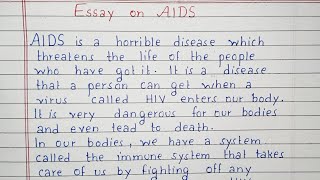 Essay on AIDS
AIDS is a horrible disease which
threatens the life of the people
who have got it. It is a disease
that a person can get when a
virus called HIV enters our body.
It is very dangerous for our bodies
and even lead to death.
In our bodies, we have a system
called the immune system that takes
care of us by fighting off any